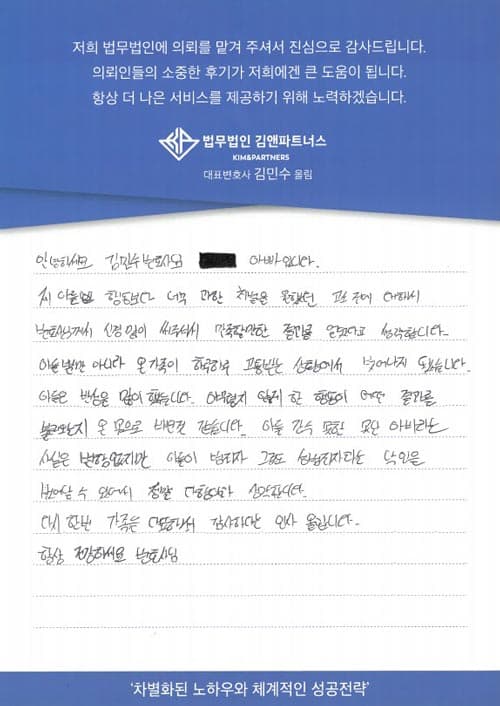 저희 법무법인에 의뢰를 맡겨 주셔서 진심으로 감사드립니다.
의뢰인들의 소중한 후기가 저희에겐 큰 도움이 됩니다.
항상 더 나은 서비스를 제공하기 위해 노력하겠습니다.
법무법인 김앤파트너스
KIM&PARTNERS
대표변호사 김민수 올림
안녕하세요 김민수변호사님 아빠입니다.
저 아들의 행동보다 너무 과한 처벌을 대해서
변호사님께서 신경 많이 써주셔서 만족할만한 결과를 얻었다고 생각합니다.
아들 뿐만 아니라 온 가족이 하루하루 고통받는 상황에서 벗어나게 되었습니다.
아들은 반성을 많이 했습니다. 한 행동이 어떤 결과를
불러오는지 온 몸으로 배운것 같습니다. 아들 간수 못한 못난 아비라는
사실은 변함없지만 아들이 범죄자 그것도 성범죄자라는 낙인을
벗어날 수 있어서 정말 다행이다 생각합니다.
다시 한번 가족을 대표해서 감사하다는 인사 올립니다.
항상 건강하세요 변호사님
'차별화된 노하우와 체계적인 성공전략'